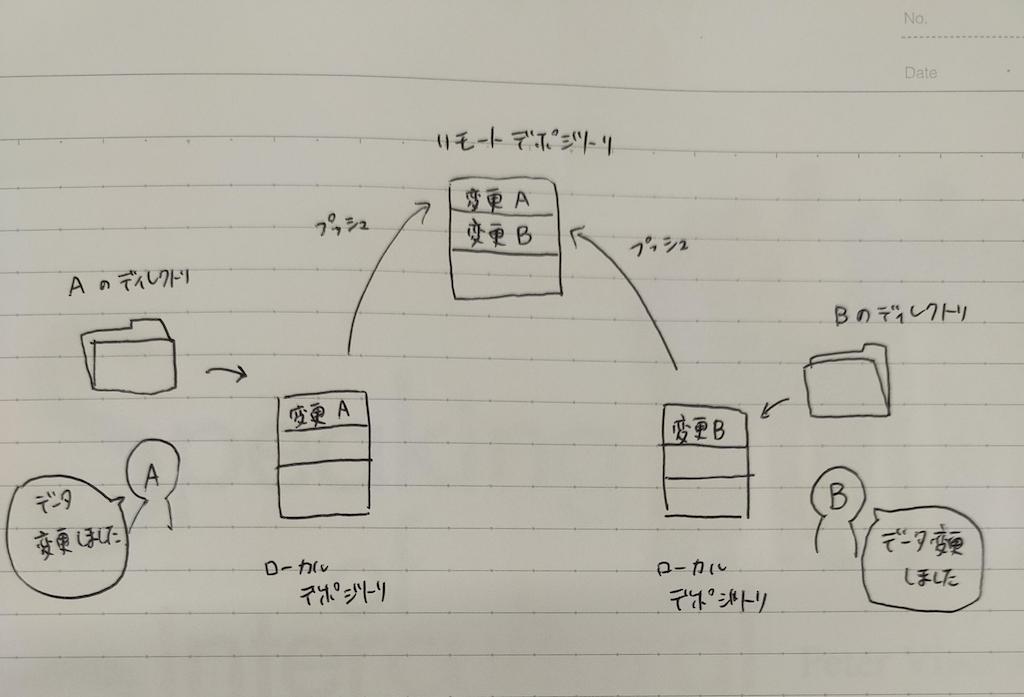 No.
Date
リモート デポジトリ
変更 A
変更 B
プッシュ
プッシュ
A のディレクトリ
B のディレクトリ
変更 A
変更 B
A
データ
変更しました
B
データ変更
しました
ローカル
デポジトーリ
ローカル
デポジトーリ